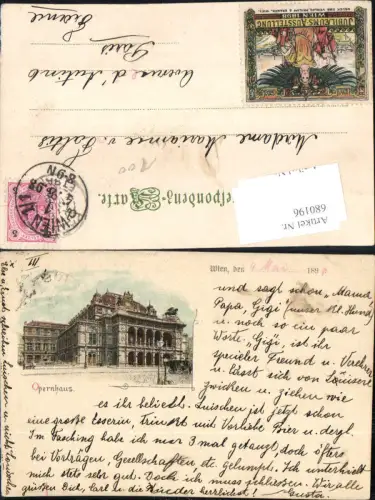 JUBILÄUMS AUSSTELLUNG
WIEN 1898
Correspondenz-Karte.
Madame Marianne v.
Avenue d'Antin
Paris
France
WIEN 1/1
8-9N
Artikel Nr.
680196
Wien, den 6 Mai 1898
und sagt schon "Mama,
Papa, Gigi" (unser kl. Hund)
u. noch so ein paar
Worte. "Gigi" ist ihr
spezieller Freund u. Verehrer
u. lässt sich von Luiserl
zwicken u. ziehen wie
Opernhaus.
es ihr beliebt. Luischen ist jetzt schon
eine große Esserin, Trinkt mit Vorliebe Bier u. dergl.
Im Fasching habe ich nur 3 mal getanzt, doch öfters
bei Vorträgen, Gesellschaften, etc. gelumpt. Ich unterhielt
mich stets sehr gut. Doch ich muss schliessen. Wir alle
grüßen Dich, Carl u. die Kinder herzlichst!
III